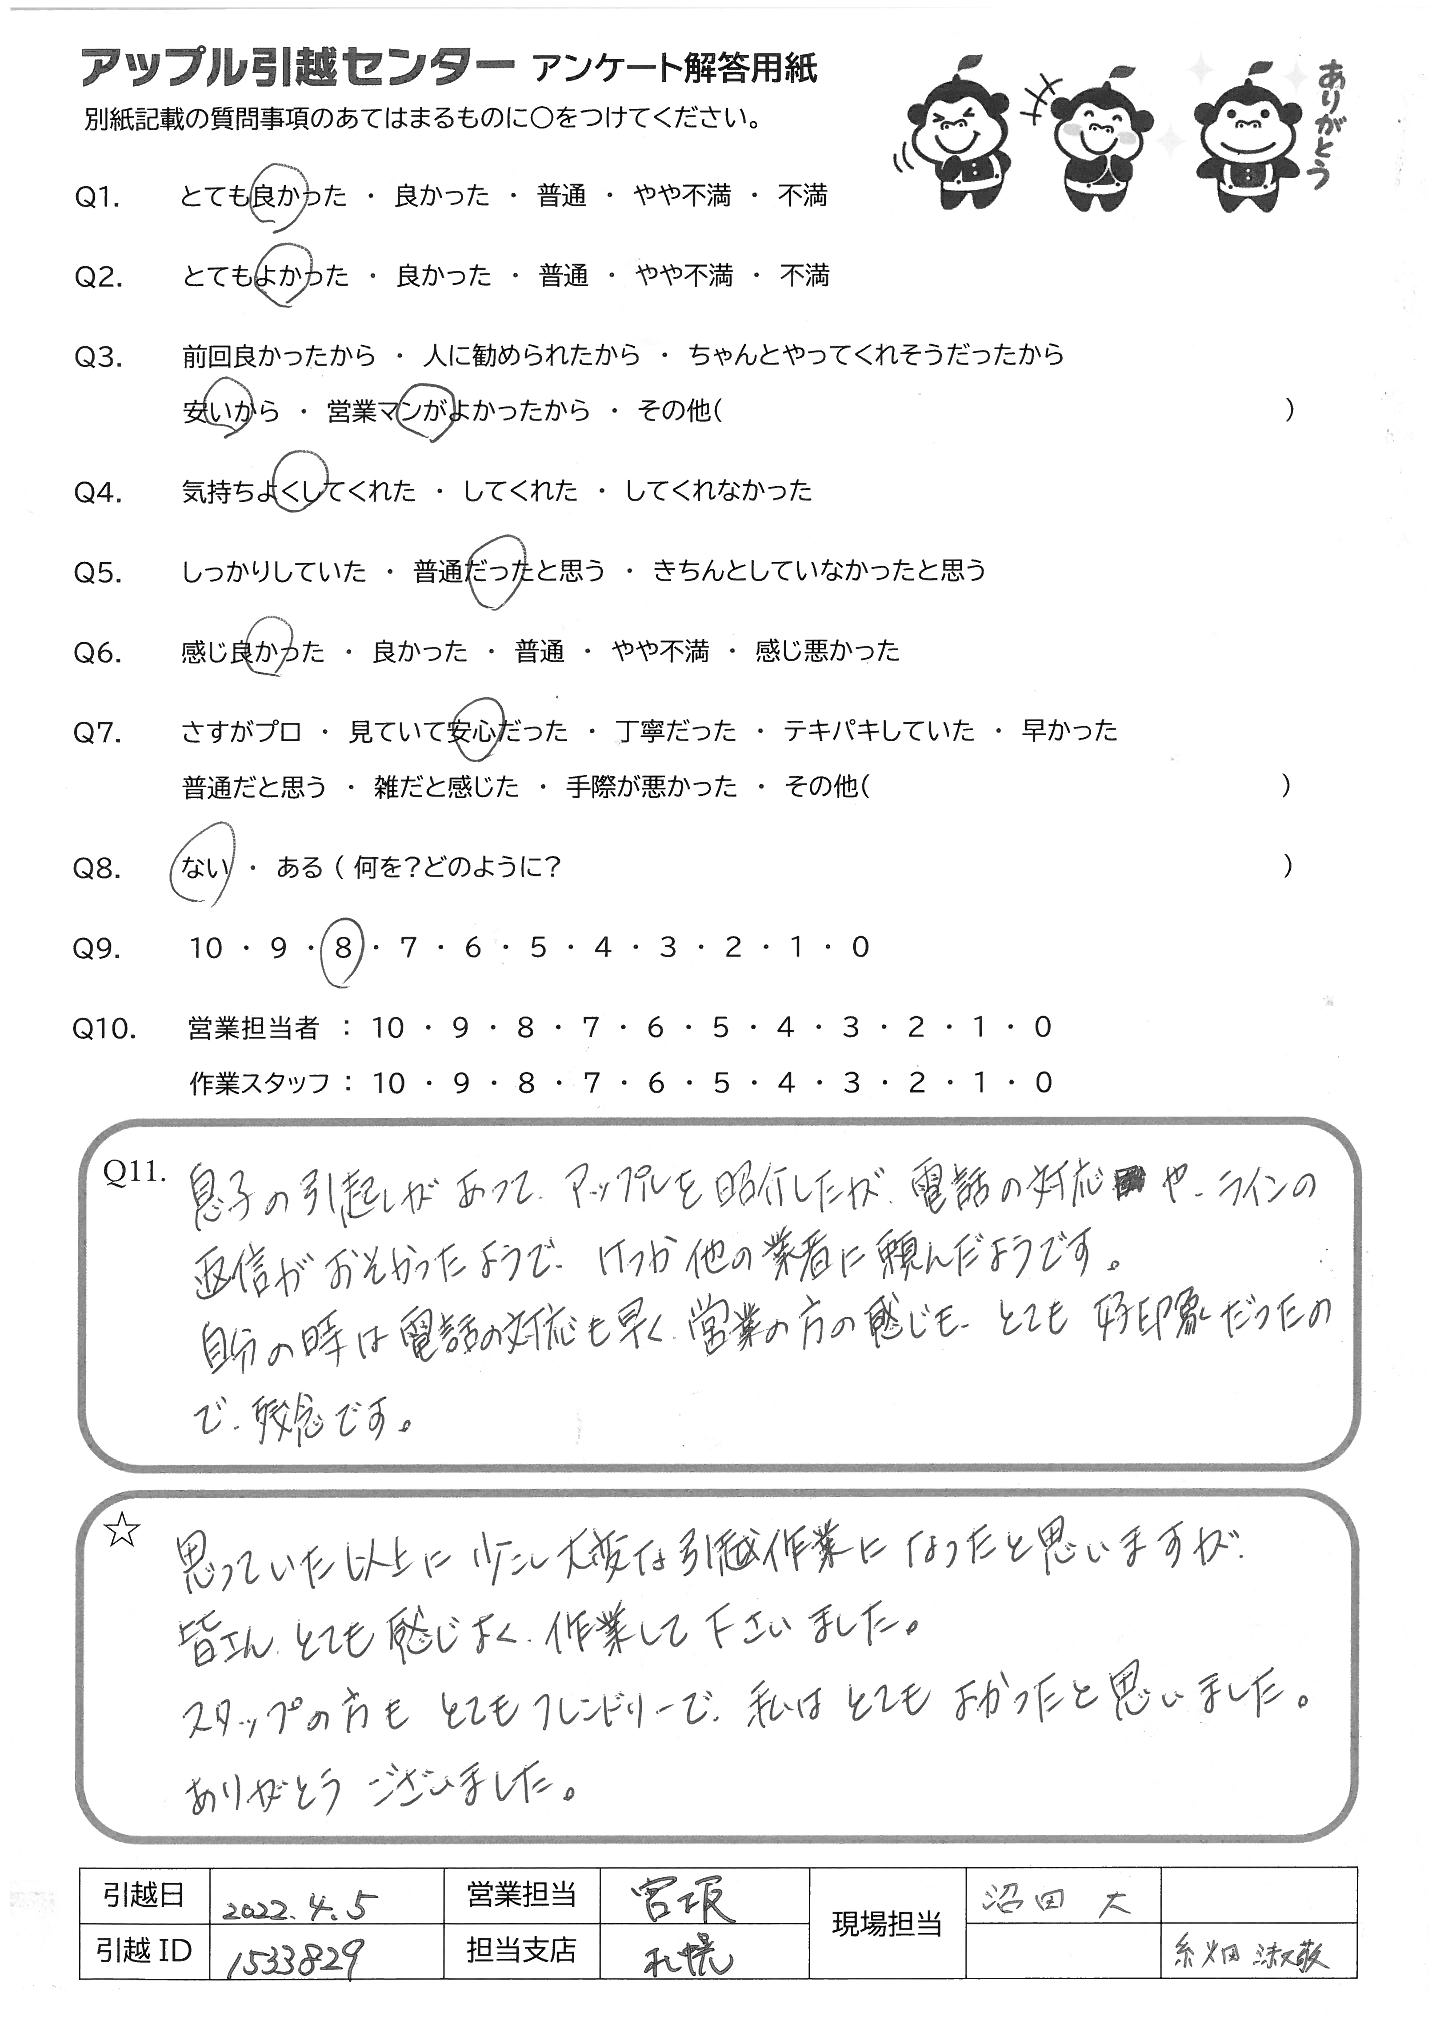 アップル引越センター アンケート解答用紙
ありがとう
別紙記載の質問事項のあてはまるものに〇をつけてください。
Q1. とても良かった ・ 良かった ・ 普通 ・ やや不満 ・ 不満
Q2. とてもよかった ・ 良かった ・ 普通 ・ やや不満 ・ 不満
Q3. 前回良かったから ・ 人に勧められたから ・ ちゃんとやってくれそうだったから
安いから ・ 営業マンがよかったから ・ その他( )
Q4. 気持ちよくしてくれた ・ してくれた ・ してくれなかった
Q5. しっかりしていた ・ 普通だったと思う ・ きちんとしていなかったと思う
Q6. 感じ良かった ・ 良かった ・ 普通 ・ やや不満 ・ 感じ悪かった
Q7. さすがプロ ・ 見ていて安心だった ・ 丁寧だった ・ テキパキしていた ・ 早かった
普通だと思う ・ 雑だと感じた ・ 手際が悪かった ・ その他( )
Q8. ない ・ ある ( 何を?どのように? )
Q9. 10 ・ 9 ・ 8 ・ 7 ・ 6 ・ 5 ・ 4 ・ 3 ・ 2 ・ 1 ・ 0
Q10. 営業担当者 : 10 ・ 9 ・ 8 ・ 7 ・ 6 ・ 5 ・ 4 ・ 3 ・ 2 ・ 1 ・ 0
作業スタッフ : 10 ・ 9 ・ 8 ・ 7 ・ 6 ・ 5 ・ 4 ・ 3 ・ 2 ・ 1 ・ 0
Q11. 息子の引越しがあって、アップルを紹介したが、電話の対応や、ラインの
返信がおそかったようで、けっか他の業者に頼んだようです。
自分の時は電話の対応も早く、営業の方の感じも、とても好印象だったの
で、残念です。
☆ 思っていた以上に少こし大変な引越作業になったと思いますが、
皆さん、とても感じよく、作業して下さいました。
スタッフの方もとてもフレンドリーで、私はとてもよかったと思いました。
ありがとうございました。
引越日 2022.4.5 営業担当 宮坂 現場担当 沼田 大
引越ID 1533829 担当支店 札幌 糸畑